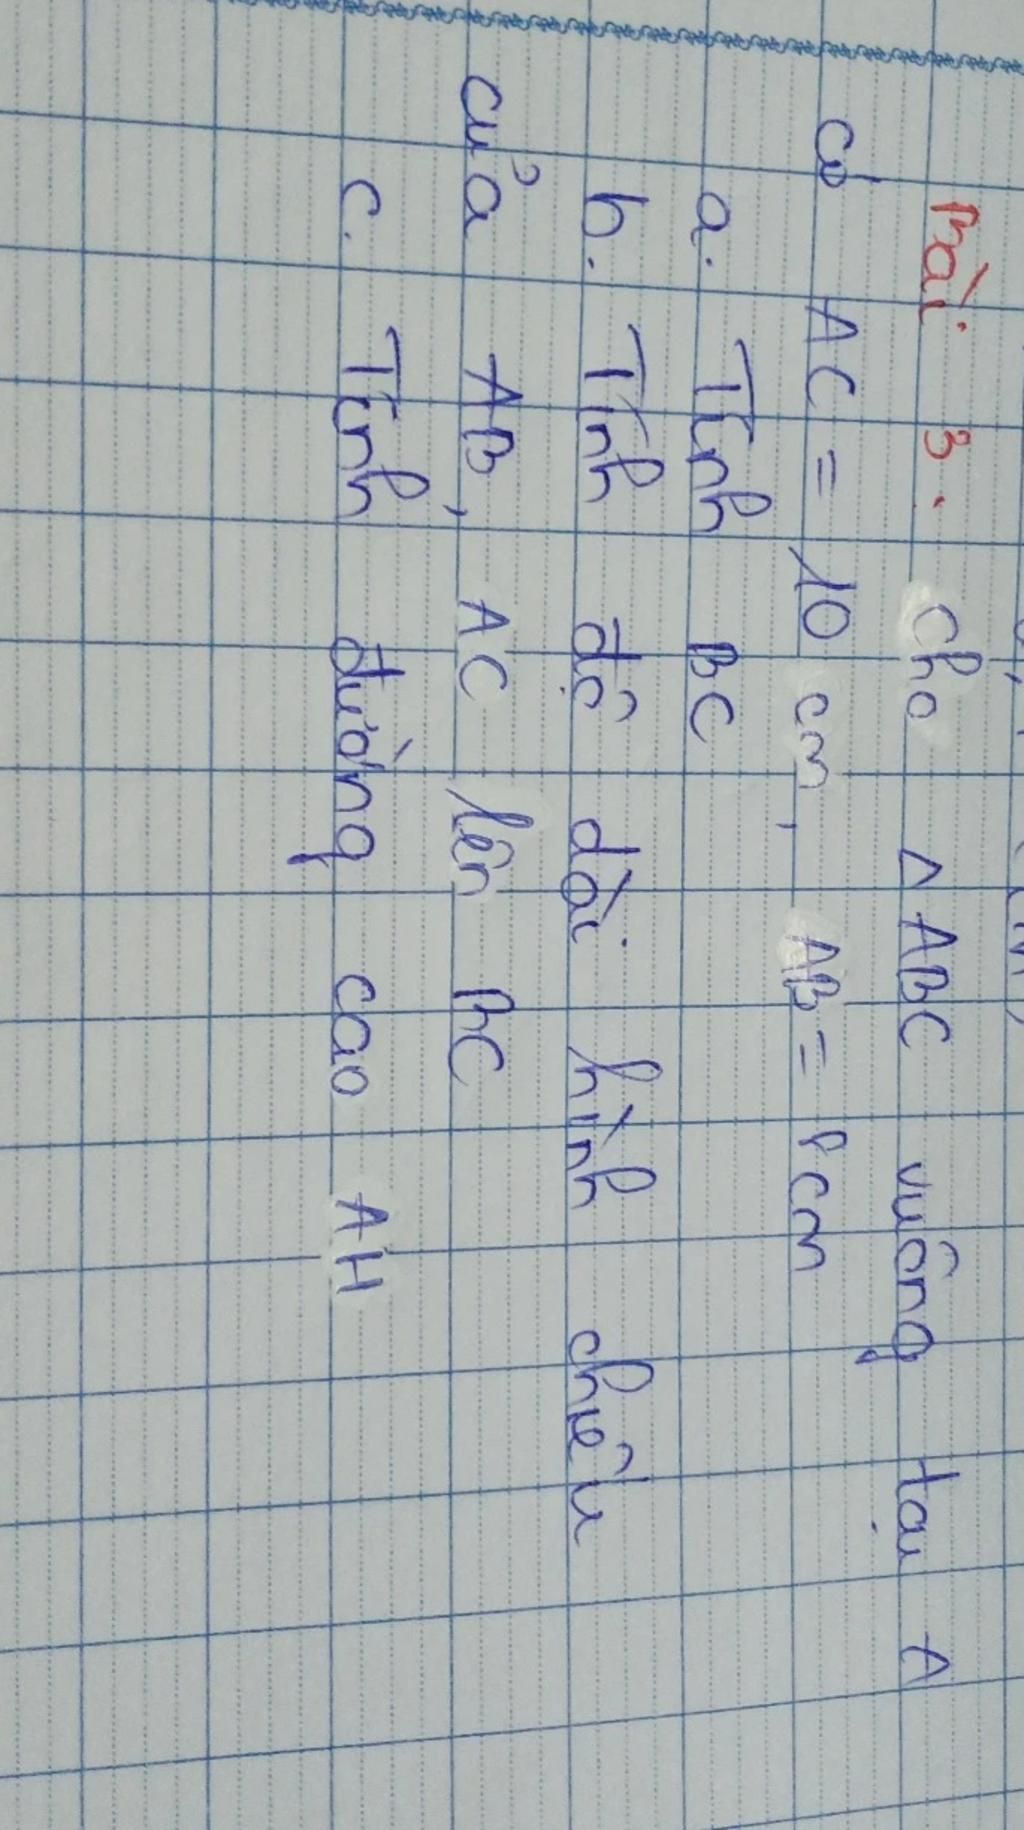 Bài 3. Cho Δ ABC vuông tại A
có AC = 10 cm, AB = 8cm
a. Tính BC
b. Tính độ dài hình chiếu
của AB, AC lên BC
c. Tính đường cao AH